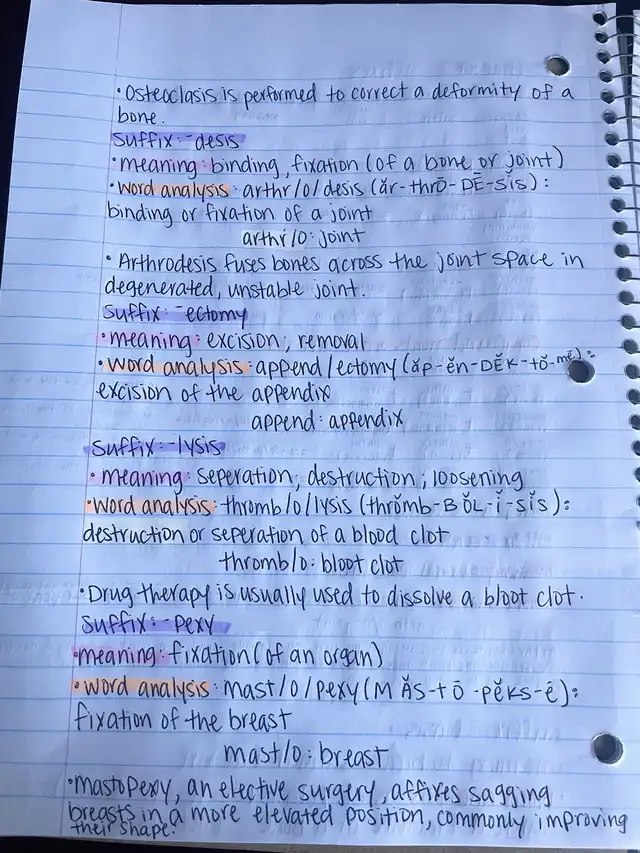 • Osteoclasis is performed to correct a deformity of a
bone.
Suffix: -desis
• meaning: binding, fixation (of a bone or joint)
• word analysis: arthr/o/desis (ăr-thrō-DĒ-sĭs):
binding or fixation of a joint
arthr/o: joint
• Arthrodesis fuses bones across the joint space in
degenerated, unstable joint.
Suffix: -ectomy
• meaning: excision, removal
• word analysis: append/ectomy (ăp-ĕn-DĔK-tŏ-mē):
excision of the appendix
append: appendix
Suffix: -lysis
• meaning: seperation; destruction; loosening
• word analysis: thromb/o/lysis (thrŏmb-BŎL-ĭ-sĭs):
destruction or seperation of a blood clot
thromb/o: bloot clot
• Drug therapy is usually used to dissolve a bloot clot.
Suffix: -pexy
• meaning: fixation (of an organ)
• word analysis: mast/o/pexy (MĂS-tō-pĕks-ē):
fixation of the breast
mast/o: breast
• mastopexy, an elective surgery, affixes sagging
breasts in a more elevated position, commonly improving
their shape.